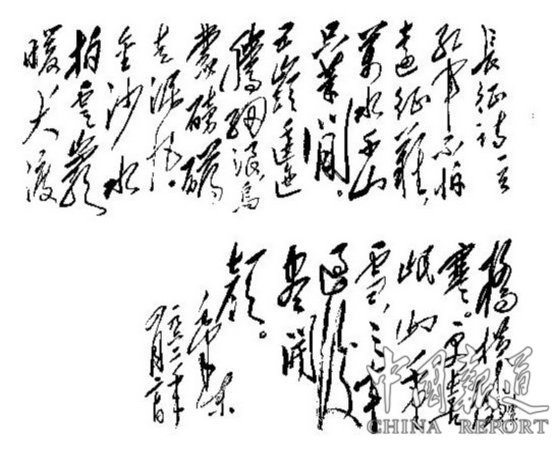 長征詩一首
紅軍不怕
遠征難，
萬水千山
只等閒。
五嶺逶迤
騰細浪，烏
蒙磅礴
走泥丸。
金沙水
拍雲崖
暖，大渡
橋橫鐵索
寒。更喜
岷山千里
雪，三軍
過後
盡開
顏。
毛澤東
中國報道
CHINA REPORT